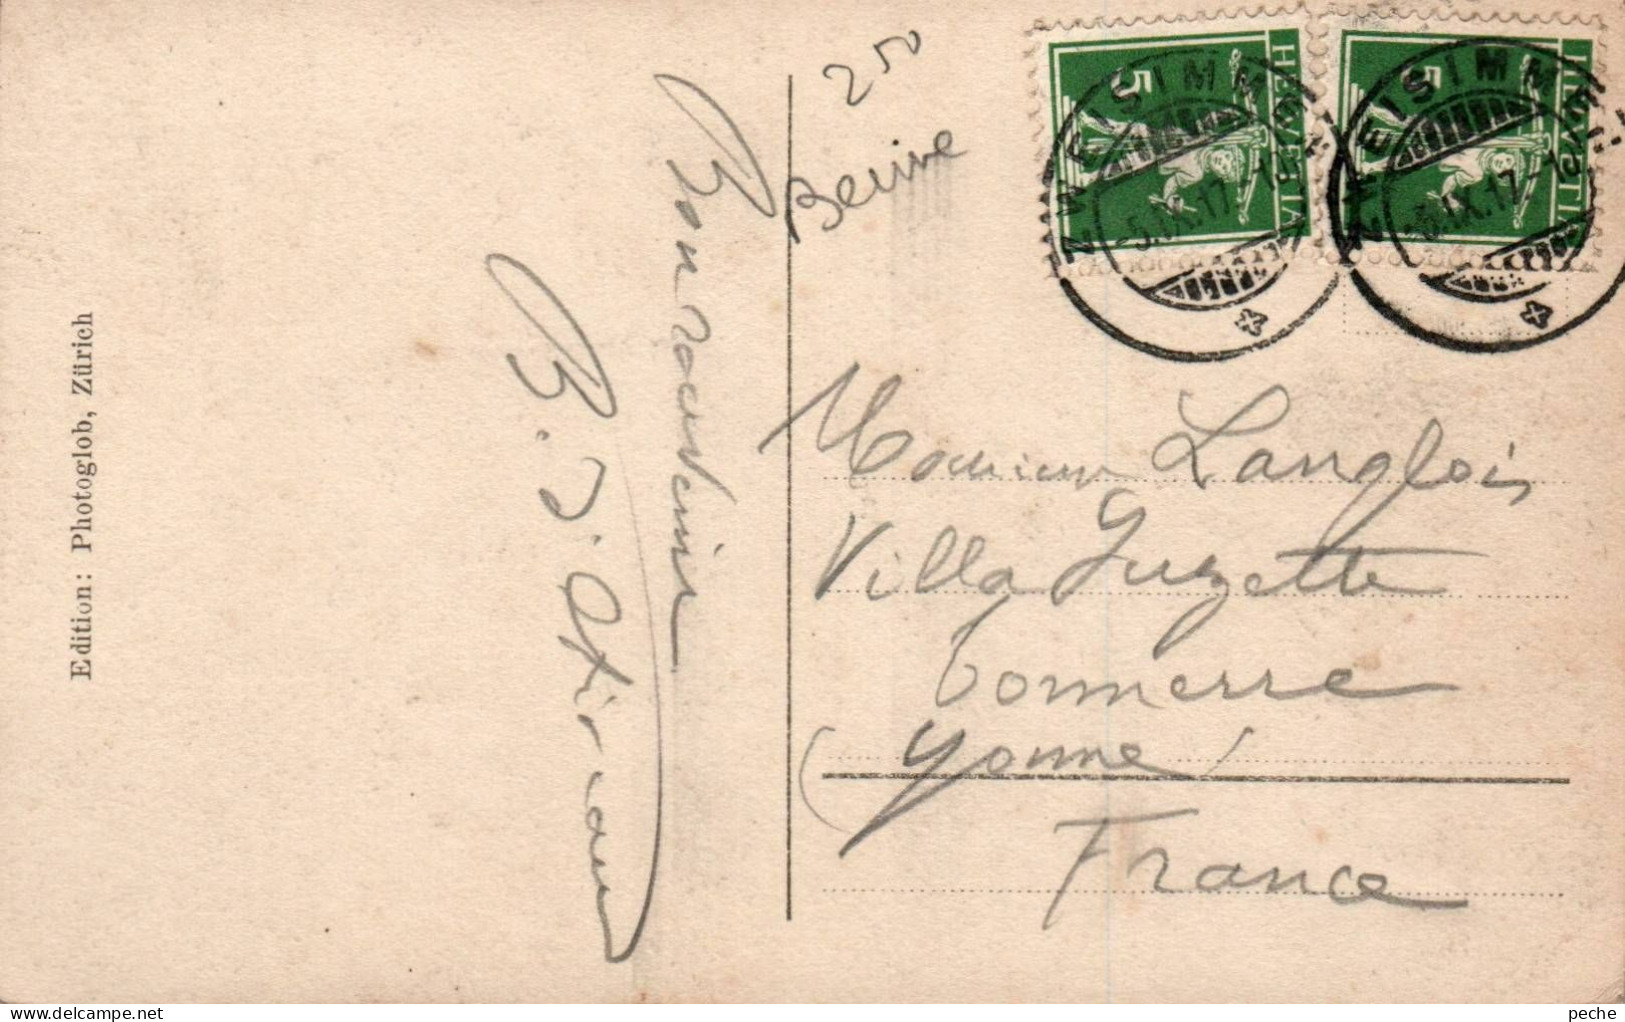 Edition: Photoglob, Zürich
Bon souvenir
250
Berne
HELVETIA
5
HELVETIA
5
ZWEISIMMEN
-5.IX.17-1
ZWEISIMMEN
IX.17-1
Monsieur Langlois
Villa Suzette
Tonnerre
(Yonne)
France
delcampe.net
peche